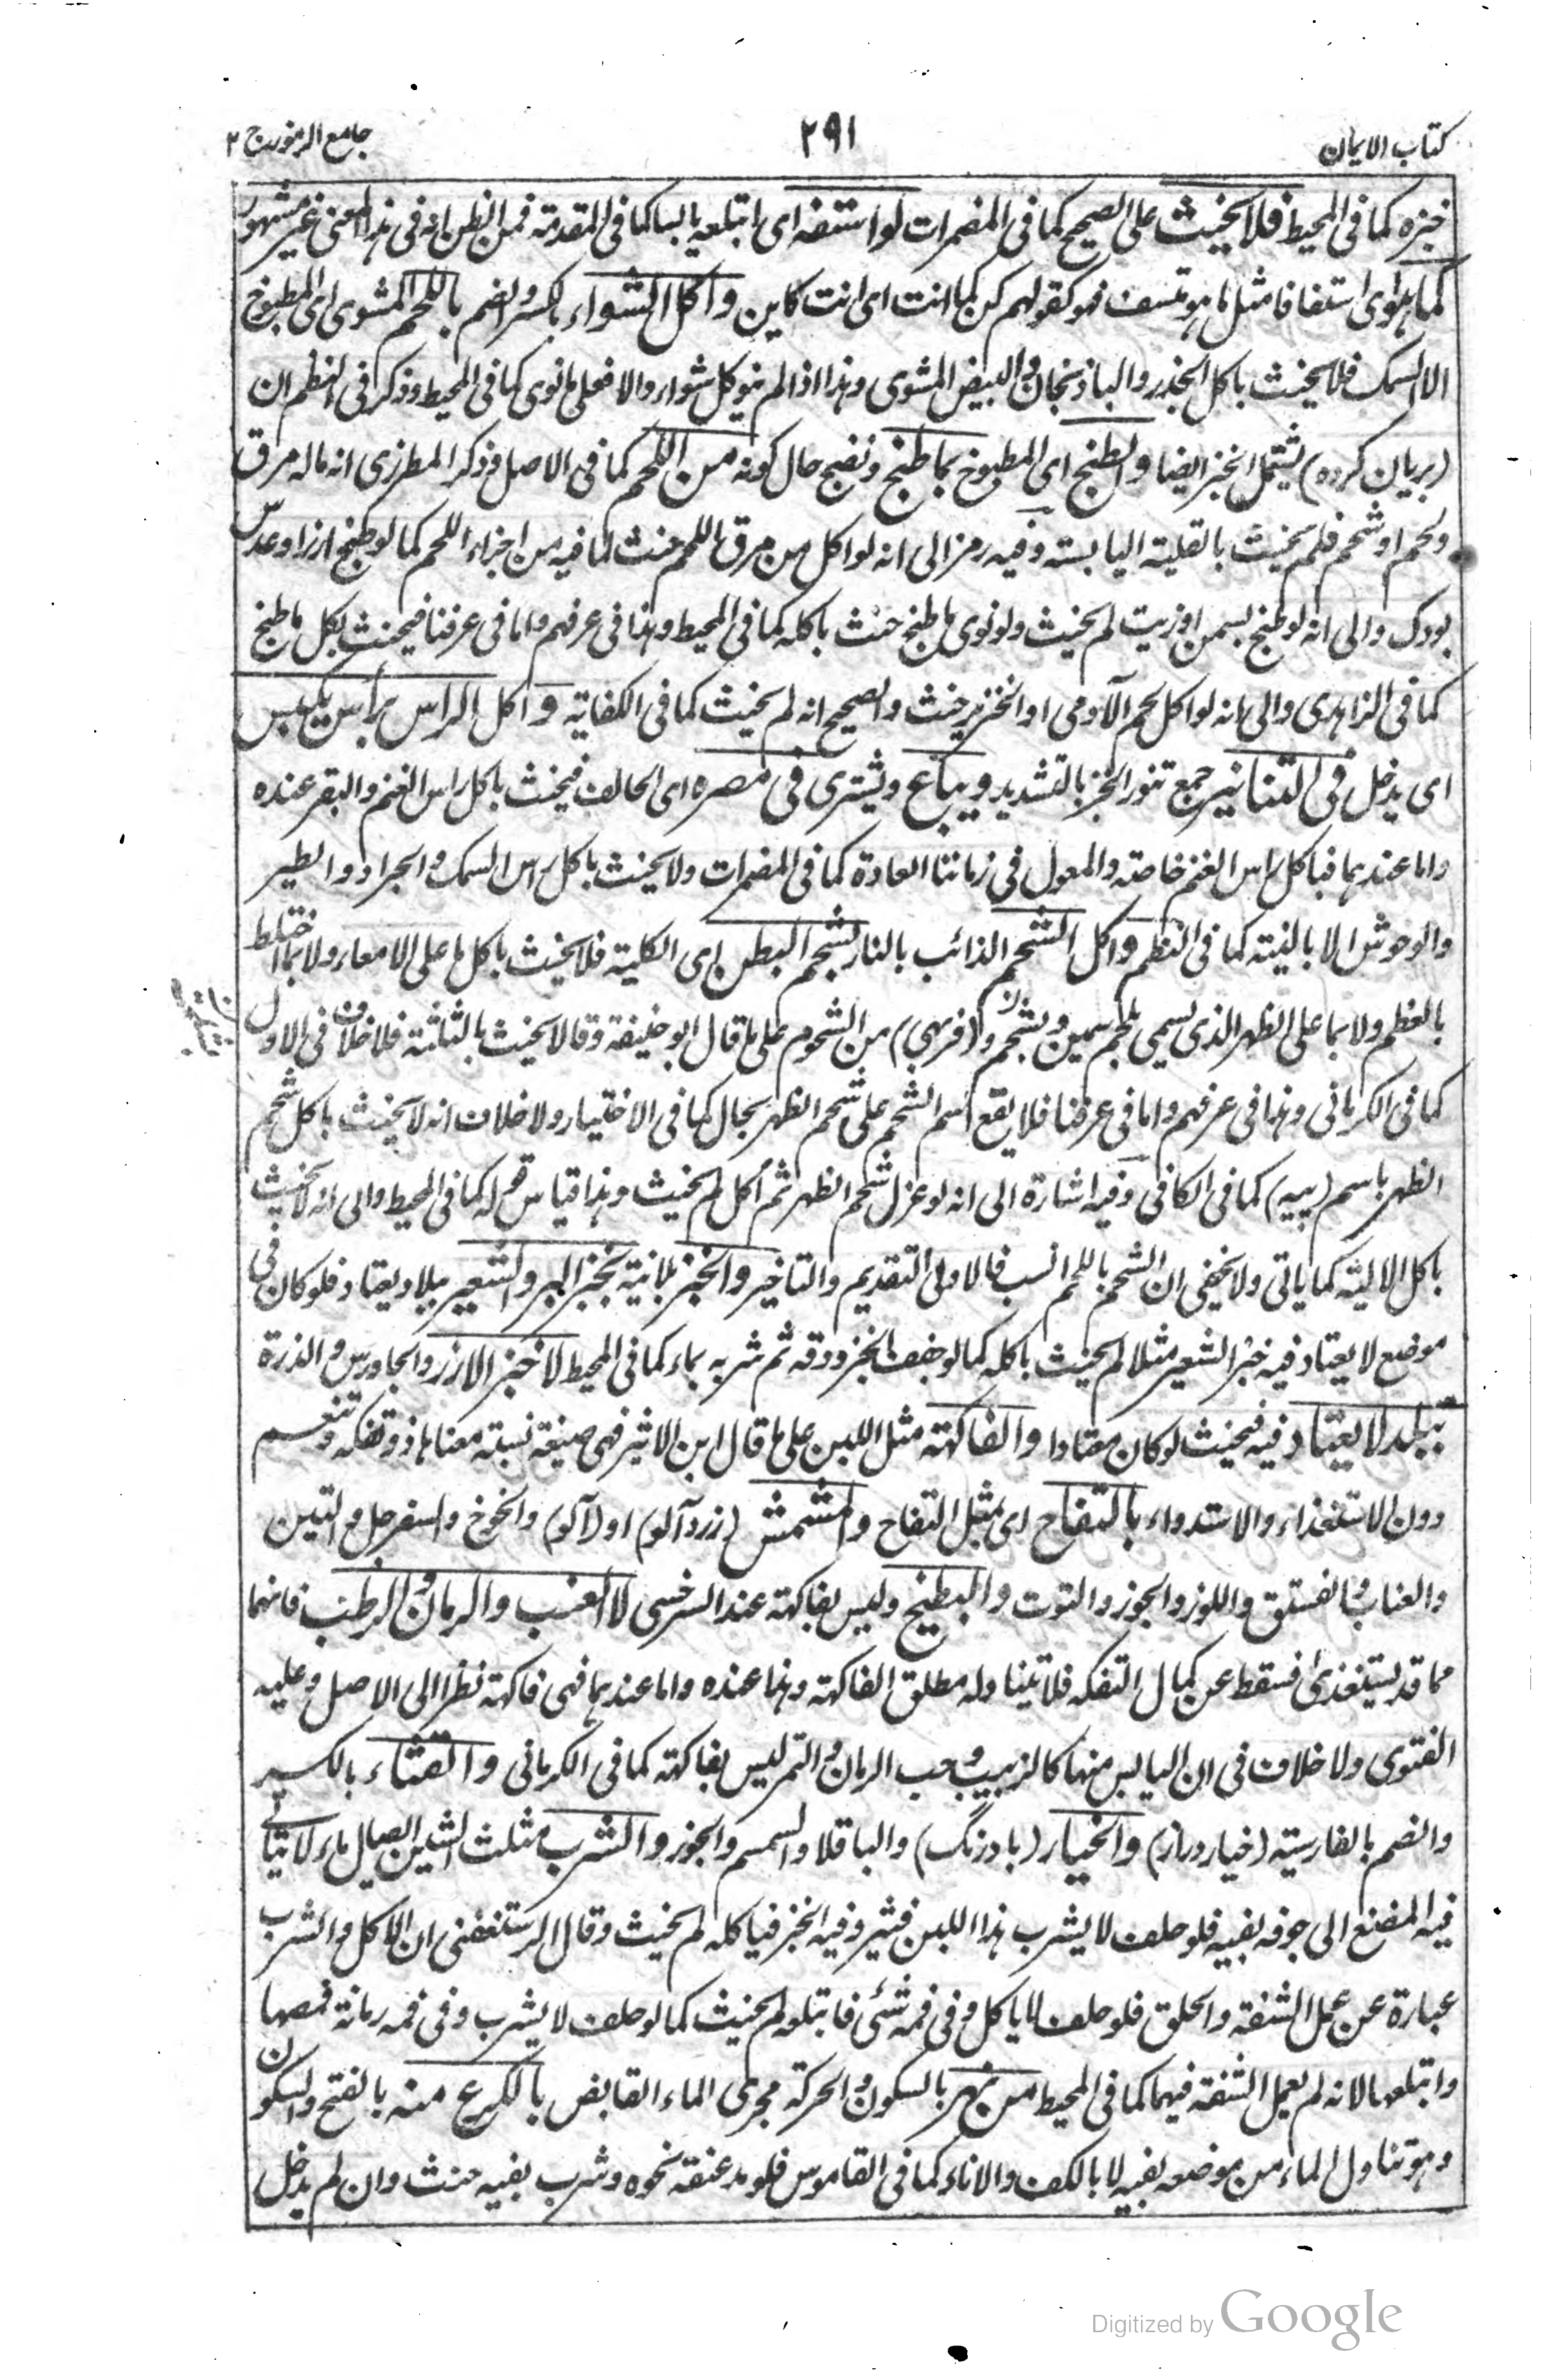 كتاب الايمان ٢٩١ جامع الرموز ج ٢
خبزه كما فى المحيط فلا يحنث على الصحيح كما فى المضمرات لو استفه اى ابتلعه يابسا كما فى المقدمة فمن الظن انه فى هذا المعنى غير مشهور
كما هو اى استفافا مثل ما هو تسف فهو كقولهم كن كما انت اى انت كاين و اكل الشواء بالكسر والضم باللحم المشوى اى المطبوخ
الا السمك فلا يحنث باكل الجذر والباذنجان والبيض المشوى وهذا اذا لم ينو كل شواء والا فعلى ما نوى كما فى المحيط وذكر فى النظم ان
(بريان كرده) يشمل الخبز ايضا و الطبخ اى المطبوخ بما طبخ ونضج حال كونه من اللحم كما فى الاصل وذكر المطرزى انه ماله مرق
ولحم او شحم فلم يحنث بالقلية اليابسة وفيه رمز الى انه لو اكل من مرق اللحم حنث لما فيه من اجزاء اللحم كما لو طبخ ارزا وعدس
بودك والى انه لو طبخ بسمن او زيت لم يحنث ولو نوى ما طبخ حنث باكله كما فى المحيط وهذا فى عرفهم واما فى عرفنا فيحنث بكل ما طبخ
كما فى الزاهدى والى انه لو اكل لحم الآدمى او الخنزير حنث والصحيح انه لم يحنث كما فى الكفاية و اكل الراس برأس يكبس
اى يدخل فى التنانير جمع تنور الخبز بالتشديد ويباع ويشترى فى مصره اى الحالف فيحنث باكل راس الغنم والبقر عنده
واما عندهما فباكل راس الغنم خاصة والمعول فى زماننا العادة كما فى المضمرات ولا يحنث باكل راس السمك والجراد والطير
والوحوش الا بالنية كما فى النظم و اكل الشحم الذائب بالنار بشحم البطن اى الكلية فلا يحنث باكل ما على الامعاء ولا بما اختلط
بالعظم ولا بما على الظهر الذى يسمى بلحم سمين وبشحم و(فربهى) من الشحوم على ما قال ابو حنيفة وقالا يحنث بالثالثة فلا خلاف فى الاول
كما فى الكرمانى وهذا فى عرفهم واما فى عرفنا فلا يقع اسم الشحم على شحم الظهر بحال كما فى الاختيار ولا خلاف انه لا يحنث باكل شحم
الظهر باسم (پيه) كما فى الكافى وفيه اشارة الى انه لو عزل شحم الظهر ثم أكل لم يحنث وهذا قياس قوله كما فى المحيط والى انه لا يحنث
باكل الالية كما ياتى ولا يخفى ان الشحم باللحم انسب فالاولى التقديم والتاخير و الخبز بلا نية بخبز البر والشعير ببلاد يعتاد فلو كان فى
موضع لا يعتاد فيه خبز الشعير مثلا لم يحنث باكله كما لو جفف الخبز ودقه ثم شربه بماء كما فى المحيط لا خبز الارز والجاورس والذرة
ببلد لا يعتاد فيه فيحنث لو كان معتادا و الفاكهة مثل اللبن على ما قال ابن الاثير فهى صيغة نسبة معناها ذو تفكه وتنعم
دون الاستغذاء والاستدواء بالتفاح اى بمثل التفاح والمشمش (زردآلو) او (آلو) والخوخ والسفرجل والتين
والعناب والفستق واللوز والجوز والتوت و البطيخ وليس بفاكهة عند السرخسى لا العنب والرمان والرطب فانهما
مما قد يستغذى فسقط عن كمال التفكه فلا تتناوله مطلق الفاكهة وهذا عنده واما عندهما فهى فاكهة نظرا الى الاصل وعليه
الفتوى ولا خلاف فى ان اليابس منها كالزبيب وحب الرمان والتمر ليس بفاكهة كما فى الكرمانى و القثاء بالكسر
والضم بالفارسية (خيار دراز) و الخيار (بادرنگ) والباقلا والسمسم والجوز و الشرب مثلث الشين ايصال ماء لا يتأتى
فيه المضغ الى جوفه بفيه فلو حلف لا يشرب هذا اللبن فيثرد فيه الخبز فياكله لم يحنث وقال الرستغفنى ان الاكل والشرب
عبارة عن عمل الشفة والحلق فلو حلف لا ياكل وفى فمه شئ فابتلعه لم يحنث كما لو حلف لا يشرب وفى فمه رمانة فمصها
وابتلعها لانه لم يعمل الشفة فيهما كما فى المحيط من نهر بالسكون والحركة مجرى الماء الفايض بالكرع منه بالفتح والسكون
وهو تناول الماء من موضعه بفيه لا بالكف والاناء كما فى القاموس فلو مد عنقه نحوه وشرب بفيه حنث وان لم يدخل
Digitized by Google